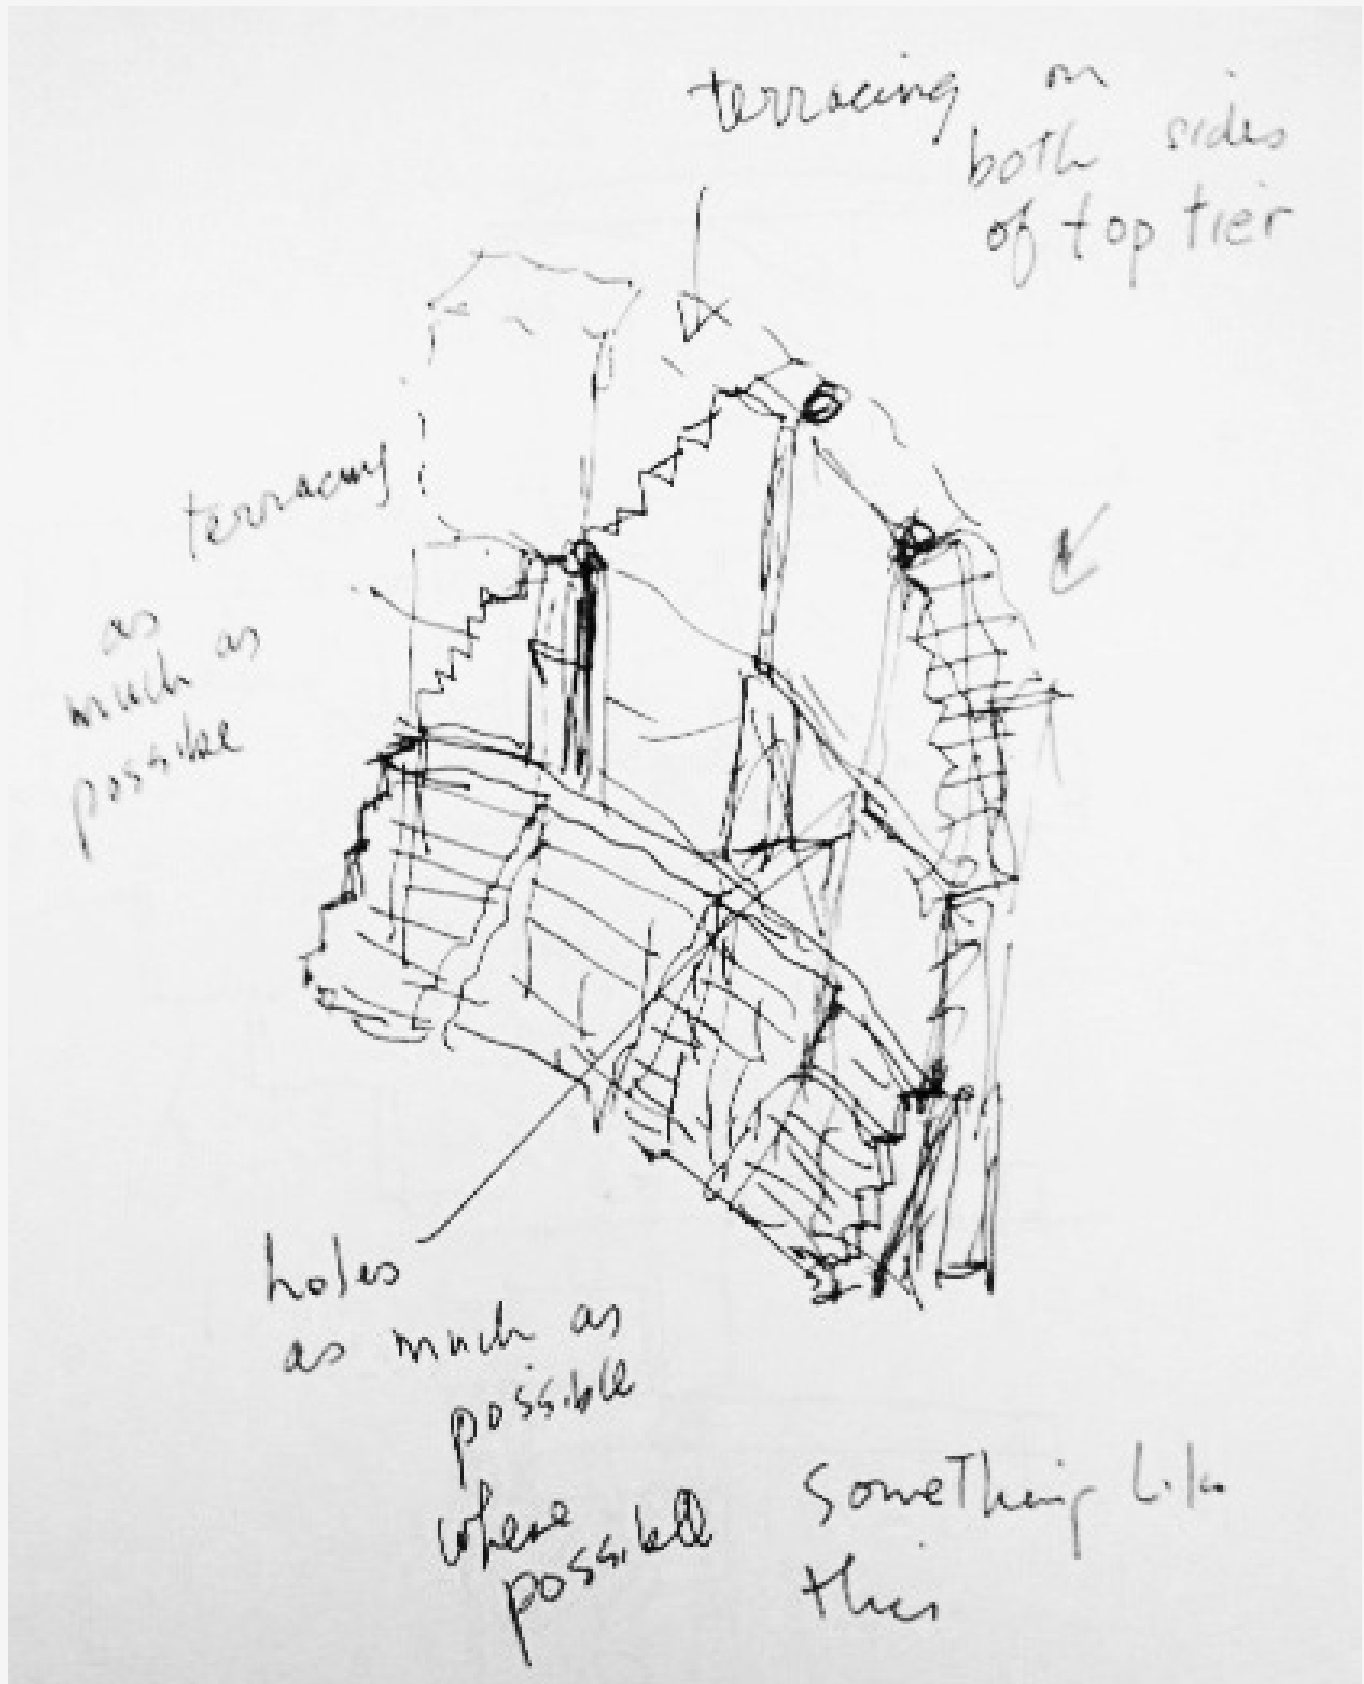 terracing on
both sides
of top tier
terracing
as
much as
possible
holes
as much as
possible
where
possible
Something like
this